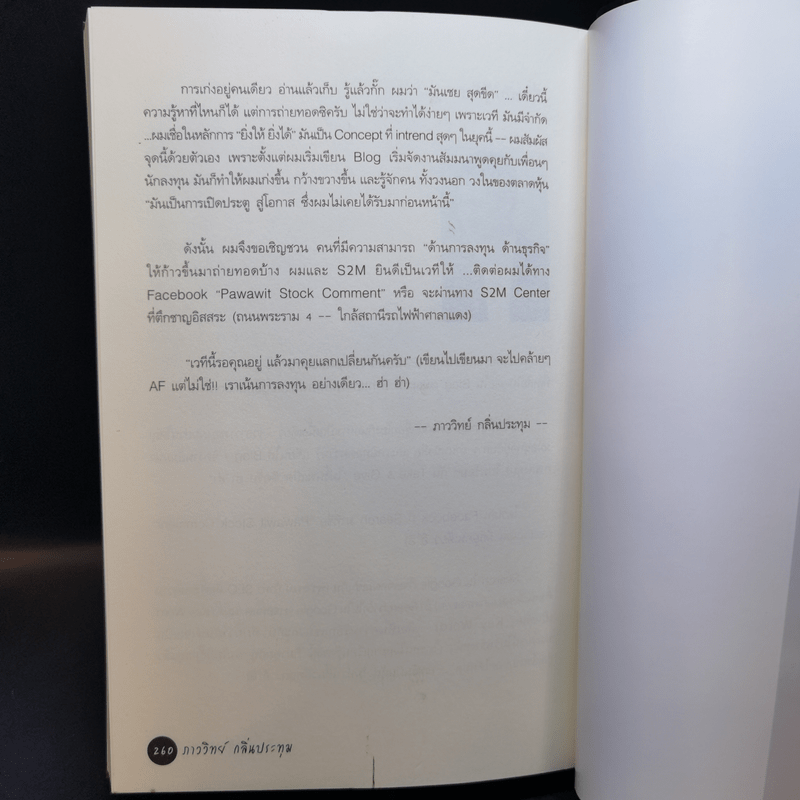 การเก่งอยู่คนเดียว อ่านแล้วเก็บ รู้แล้วกั๊ก ผมว่า “มันเชย สุดขีด” ... เดี๋ยวนี้
ความรู้หาที่ไหนก็ได้ แต่การถ่ายทอดซิครับ ไม่ใช่ว่าจะทำได้ง่ายๆ เพราะเวที มันมีจำกัด
...ผมเชื่อในหลักการ “ยิ่งให้ ยิ่งได้” มันเป็น Concept ที่ intrend สุดๆ ในยุคนี้ -- ผมสัมผัส
จุดนี้ด้วยตัวเอง เพราะตั้งแต่ผมเริ่มเขียน Blog เริ่มจัดงานสัมมนาพูดคุยกับเพื่อนๆ
นักลงทุน มันก็ทำให้ผมเก่งขึ้น กว้างขวางขึ้น และรู้จักคน ทั้งวงนอก วงในของตลาดหุ้น
“มันเป็นการเปิดประตู สู่โอกาส ซึ่งผมไม่เคยได้รับมาก่อนหน้านี้”
ดังนั้น ผมจึงขอเชิญชวน คนที่มีความสามารถ “ด้านการลงทุน ด้านธุรกิจ”
ให้ก้าวขึ้นมาถ่ายทอดบ้าง ผมและ S2M ยินดีเป็นเวทีให้ ...ติดต่อผมได้ทาง
Facebook “Pawawit Stock Comment” หรือ จะผ่านทาง S2M Center
ที่ตึกชาญอิสสระ (ถนนพระราม 4 -- ใกล้สถานีรถไฟฟ้าศาลาแดง)
“เวทีนี้รอคุณอยู่ แล้วมาคุยแลกเปลี่ยนกันครับ” (เขียนไปเขียนมา จะไปคล้ายๆ
AF แต่ไม่ใช่!! เราเน้นการลงทุน อย่างเดียว... ฮ่า ฮ่า)
-- ภาววิทย์ กลิ่นประทุม --
260 ภาววิทย์ กลิ่นประทุม